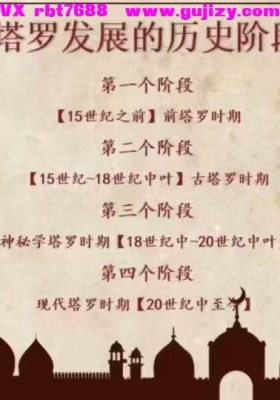 VX rbt7688 www.gujizy.com
塔罗发展的历史阶段
第一个阶段
【15世纪之前】前塔罗时期
第二个阶段
【15世纪-18世纪中叶】古塔罗时期
第三个阶段
神秘学塔罗时期【18世纪中-20世纪中叶
第四个阶段
现代塔罗时期【20世纪中至今】